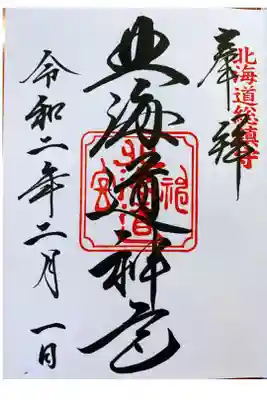 奉拝
北海道総鎮守
北海道神宮
令和二年二月一日